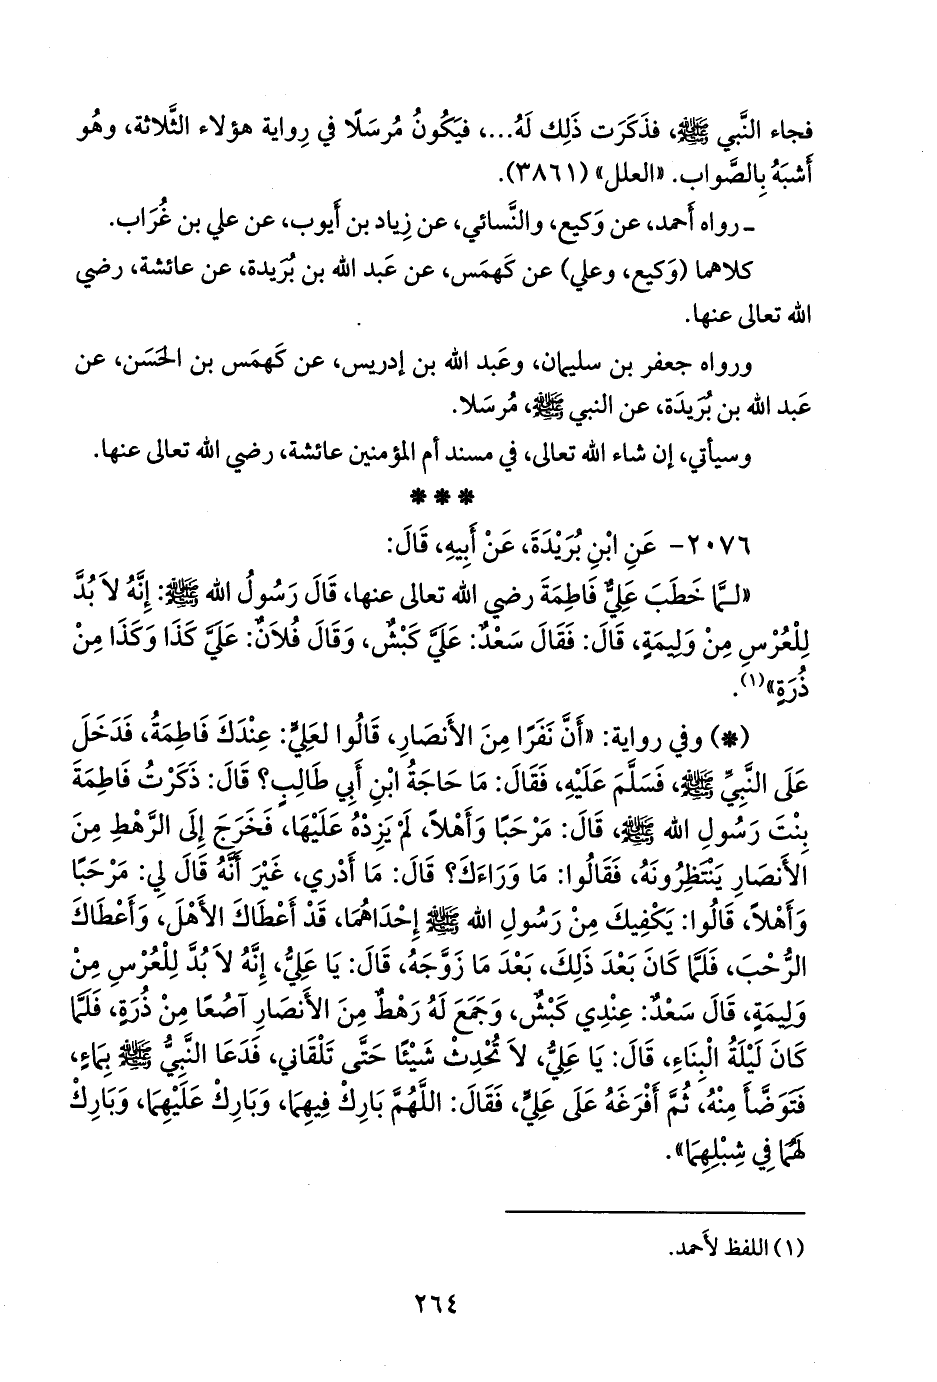 فجاء النَّبي ﷺ، فذَكَرَت ذَلِك لَهُ...، فيَكُونُ مُرسَلًا في رِواية هؤلاء الثَّلاثة، وهُو
أَشبَهُ بِالصَّواب. «العلل» (٣٨٦١).
ـ رواه أَحمد، عن وَكيع، والنَّسائي، عن زِياد بن أَيوب، عن علي بن غُرَاب.
كلاهما (وَكيع، وعلي) عن كَهمَس، عن عَبد الله بن بُرَيدة، عن عائشة، رضي
الله تعالى عنها.
ورواه جعفر بن سليمان، وعَبد الله بن إدريس، عن كَهمَس بن الحَسَن، عن
عَبد الله بن بُرَيدَة، عن النبي ﷺ، مُرسَلا.
وسيأتي، إن شاء الله تعالى، في مسند أم المؤمنين عائشة، رضي الله تعالى عنها.
* * *
٢٠٧٦- عَنِ ابْنِ بُرَيْدَةَ، عَنْ أَبِيهِ، قَالَ:
«لـمَّا خَطَبَ عَلِيٌّ فَاطِمَةَ رضي الله تعالى عنها، قَالَ رَسُولُ الله ﷺ: إِنَّهُ لاَ بُدَّ
لِلْعُرْسِ مِنْ وَلِيمَةٍ، قَالَ: فَقَالَ سَعْدٌ: عَلَيَّ كَبْشٌ، وَقَالَ فُلاَنٌ: عَلَيَّ كَذَا وَكَذَا مِنْ
ذُرَةٍ»(١).
(*) وفي رواية: «أَنَّ نَفَرًا مِنَ الأَنصَارِ، قَالُوا لعَلِيٍّ: عِنْدَكَ فَاطِمَةُ، فَدَخَلَ
عَلَى النَّبِيِّ ﷺ، فَسَلَّمَ عَلَيْهِ، فَقَالَ: مَا حَاجَةُ ابْنِ أَبي طَالِبٍ؟ قَالَ: ذَكَرْتُ فَاطِمَةَ
بِنْتَ رَسُولِ الله ﷺ، قَالَ: مَرْحَبًا وَأَهْلاً، لَمْ يَزِدْهُ عَلَيْهَا، فَخَرَجَ إِلَى الرَّهْطِ مِنَ
الأَنصَارِ يَنْتَظِرُونَهُ، فَقَالُوا: مَا وَرَاءَكَ؟ قَالَ: مَا أَدْرِي، غَيْرَ أَنَّهُ قَالَ لِي: مَرْحَبًا
وَأَهْلاً، قَالُوا: يَكْفِيكَ مِنْ رَسُولِ الله ﷺ إِحْدَاهُمَا، قَدْ أَعْطَاكَ الأَهْلَ، وَأَعْطَاكَ
الرُّحْبَ، فَلَمَّا كَانَ بَعْدَ ذَلِكَ، بَعْدَ مَا زَوَّجَهُ، قَالَ: يَا عَلِيُّ، إِنَّهُ لاَ بُدَّ لِلْعُرْسِ مِنْ
وَلِيمَةٍ، قَالَ سَعْدٌ: عِنْدِي كَبْشٌ، وَجَمَعَ لَهُ رَهْطٌ مِنَ الأَنصَارِ آصُعًا مِنْ ذُرَةٍ، فَلَمَّا
كَانَ لَيْلَةُ الْبِنَاءِ، قَالَ: يَا عَلِيُّ، لاَ تُحْدِثْ شَيْئًا حَتَّى تَلْقَاني، فَدَعَا النَّبِيُّ ﷺ بِمَاءٍ،
فَتَوَضَّأَ مِنْهُ، ثُمَّ أَفْرَغَهُ عَلَى عَلِيٍّ، فَقَالَ: اللَّهُمَّ بَارِكْ فِيهِمَا، وَبَارِكْ عَلَيْهِمَا، وَبَارِكْ
لَهُمَا فِي شِبْلِهِمَا».
(١) اللفظ لأَحمد.
٢٦٤